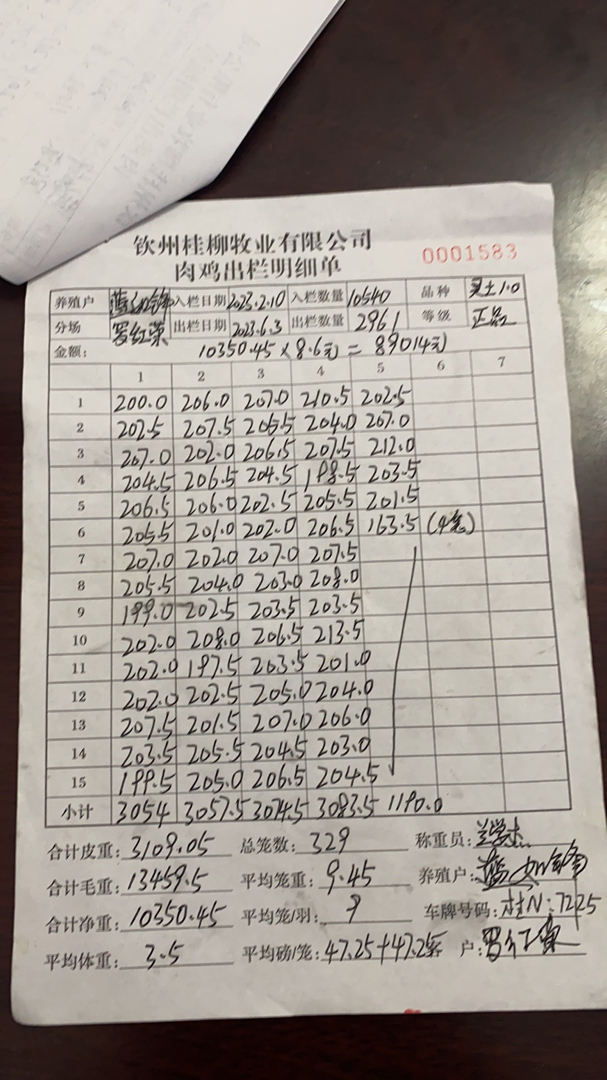 钦州桂柳牧业有限公司
肉鸡出栏明细单
0001583
养殖户 入栏日期 2023.2.10 入栏数量 10540 品种 土1.0
分场 罗红荣 出栏日期 2023.6.3 出栏数量 2961 等级 正品
金额: 10350.45×8.6元=89014元
1 2 3 4 5 6 7
1 200.0 206.0 207.0 210.5 202.5
2 202.5 207.5 205.5 204.0 207.0
3 207.0 202.0 206.5 207.5 212.0
4 204.5 206.5 204.5 198.5 203.5
5 206.5 206.0 202.5 205.5 201.5
6 205.5 201.0 202.0 206.5 163.5 (4笼)
7 207.0 202.0 207.0 207.5
8 205.5 204.0 203.0 208.0
9 199.0 202.5 203.5 203.5
10 202.0 208.0 206.5 213.5
11 202.0 197.5 203.5 201.0
12 202.0 202.5 205.0 204.0
13 207.5 201.5 207.0 206.0
14 203.5 205.5 204.5 203.0
15 199.5 205.0 206.5 204.5
小计 3054 3057.5 3074.5 3083.5 1190.0
合计皮重: 3109.05 总笼数: 329 称重员:
合计毛重: 13459.5 平均笼重: 9.45 养殖户:
合计净重: 10350.45 平均笼/羽: 9 车牌号码: N:7225
平均体重: 3.5 平均磅/笼: 47.25+47.25 客户: 罗红荣